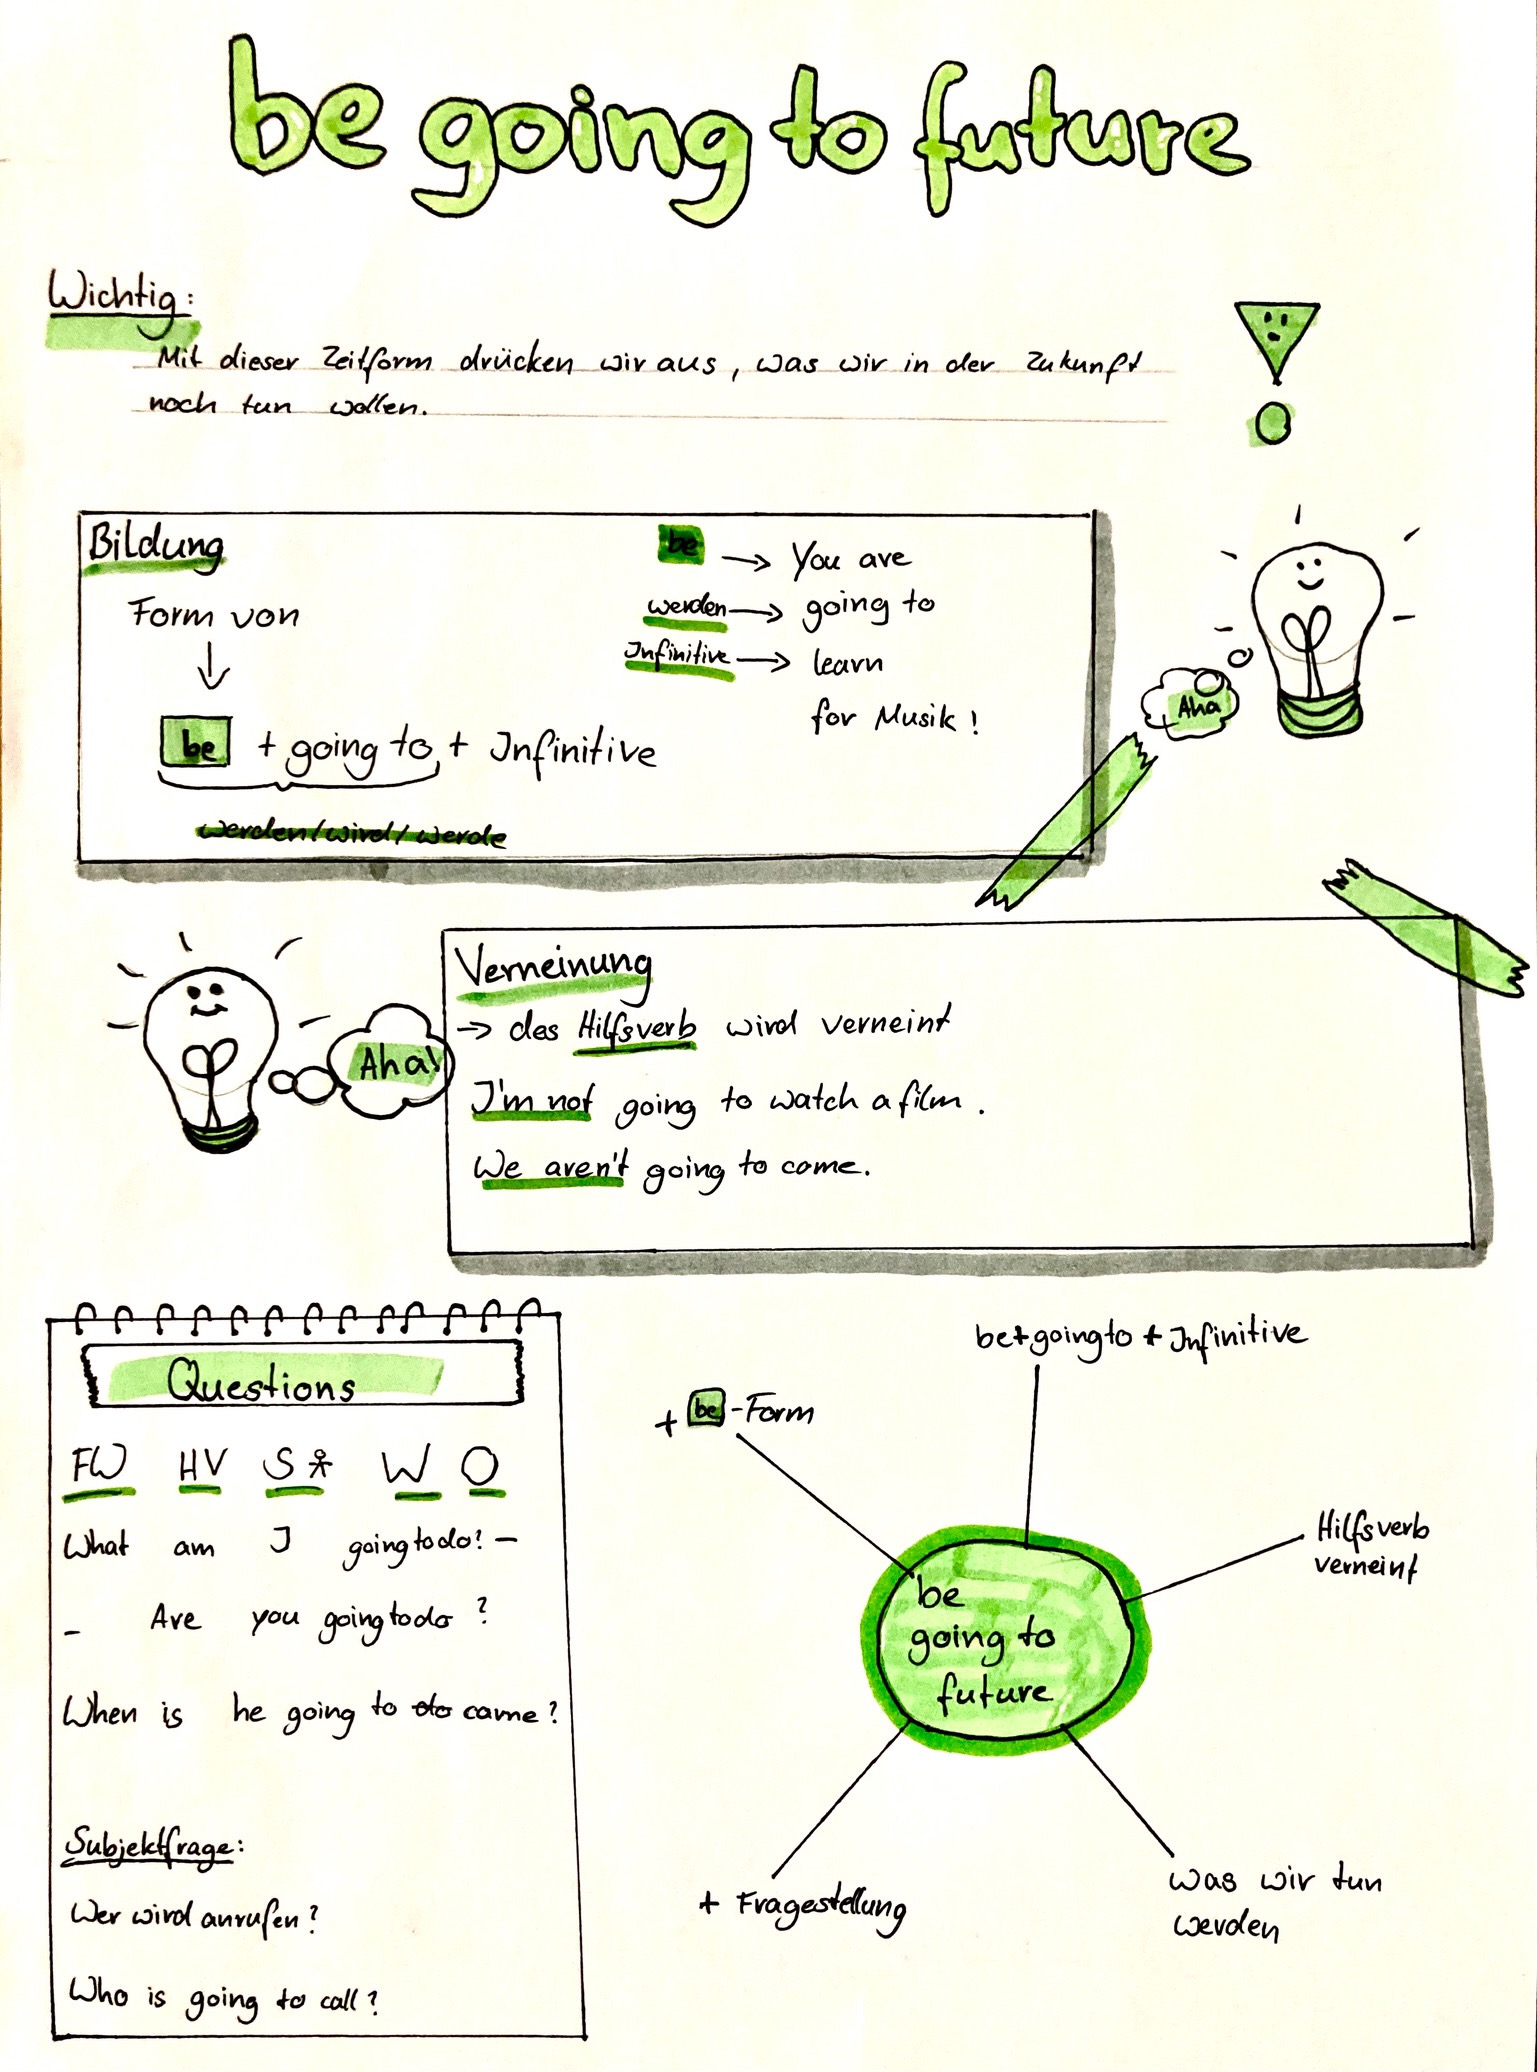 be going to future
Wichtig:
Mit dieser Zeitform drücken wir aus, was wir in der Zukunft
noch tun wollen.
Bildung
Form von
be + going to + Infinitive
werden/wird/werde
be → You are
werden → going to
Infinitive → learn
for Musik!
Aha
Verneinung
→ das Hilfsverb wird verneint
I'm not going to watch a film.
We aren't going to come.
Aha!
Questions
FW HV S W O
What am I going to do? –
– Are you going to do ?
When is he going to do came?
Subjektfrage:
Wer wird anrufen?
Who is going to call?
be+going to + Infinitive
+ be-Form
Hilfsverb
verneint
be
going to
future
+ Fragestellung
was wir tun
werden